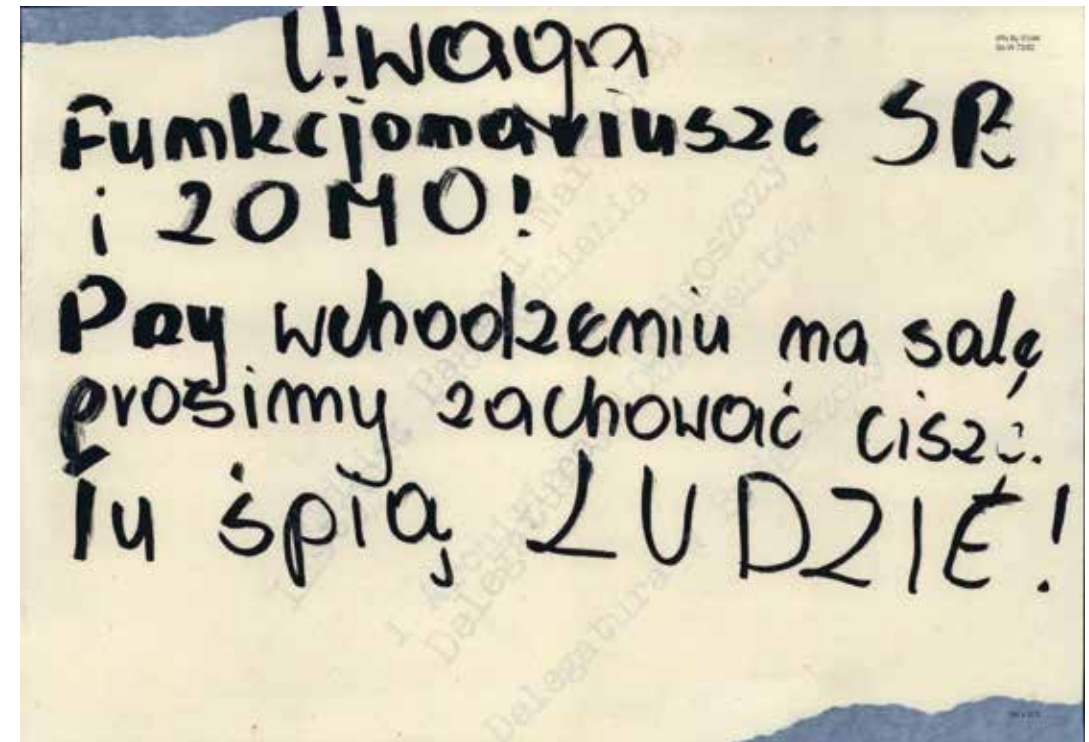 Uwaga
Funkcjonariusze SB
i ZOMO!
Przy wchodzeniu na salę
prosimy zachować ciszę.
Tu śpią LUDZIE!